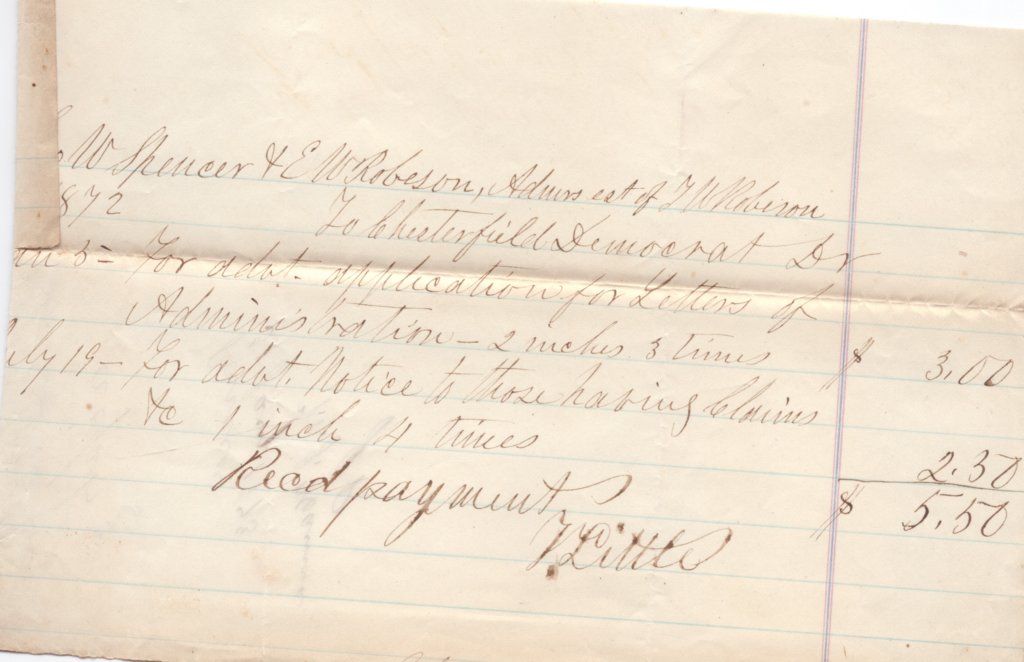 W Spencer & E W Robeson, Admrs est of T W Robeson
872
To Chesterfield Democrat Dr
5 - For advt. application for Letters of
Administration - 2 inches 3 times $ 3.00
19 - For advt. Notice to those having Claims
&c 1 inch 4 times 2.50
$ 5.50
Recd payment
Little